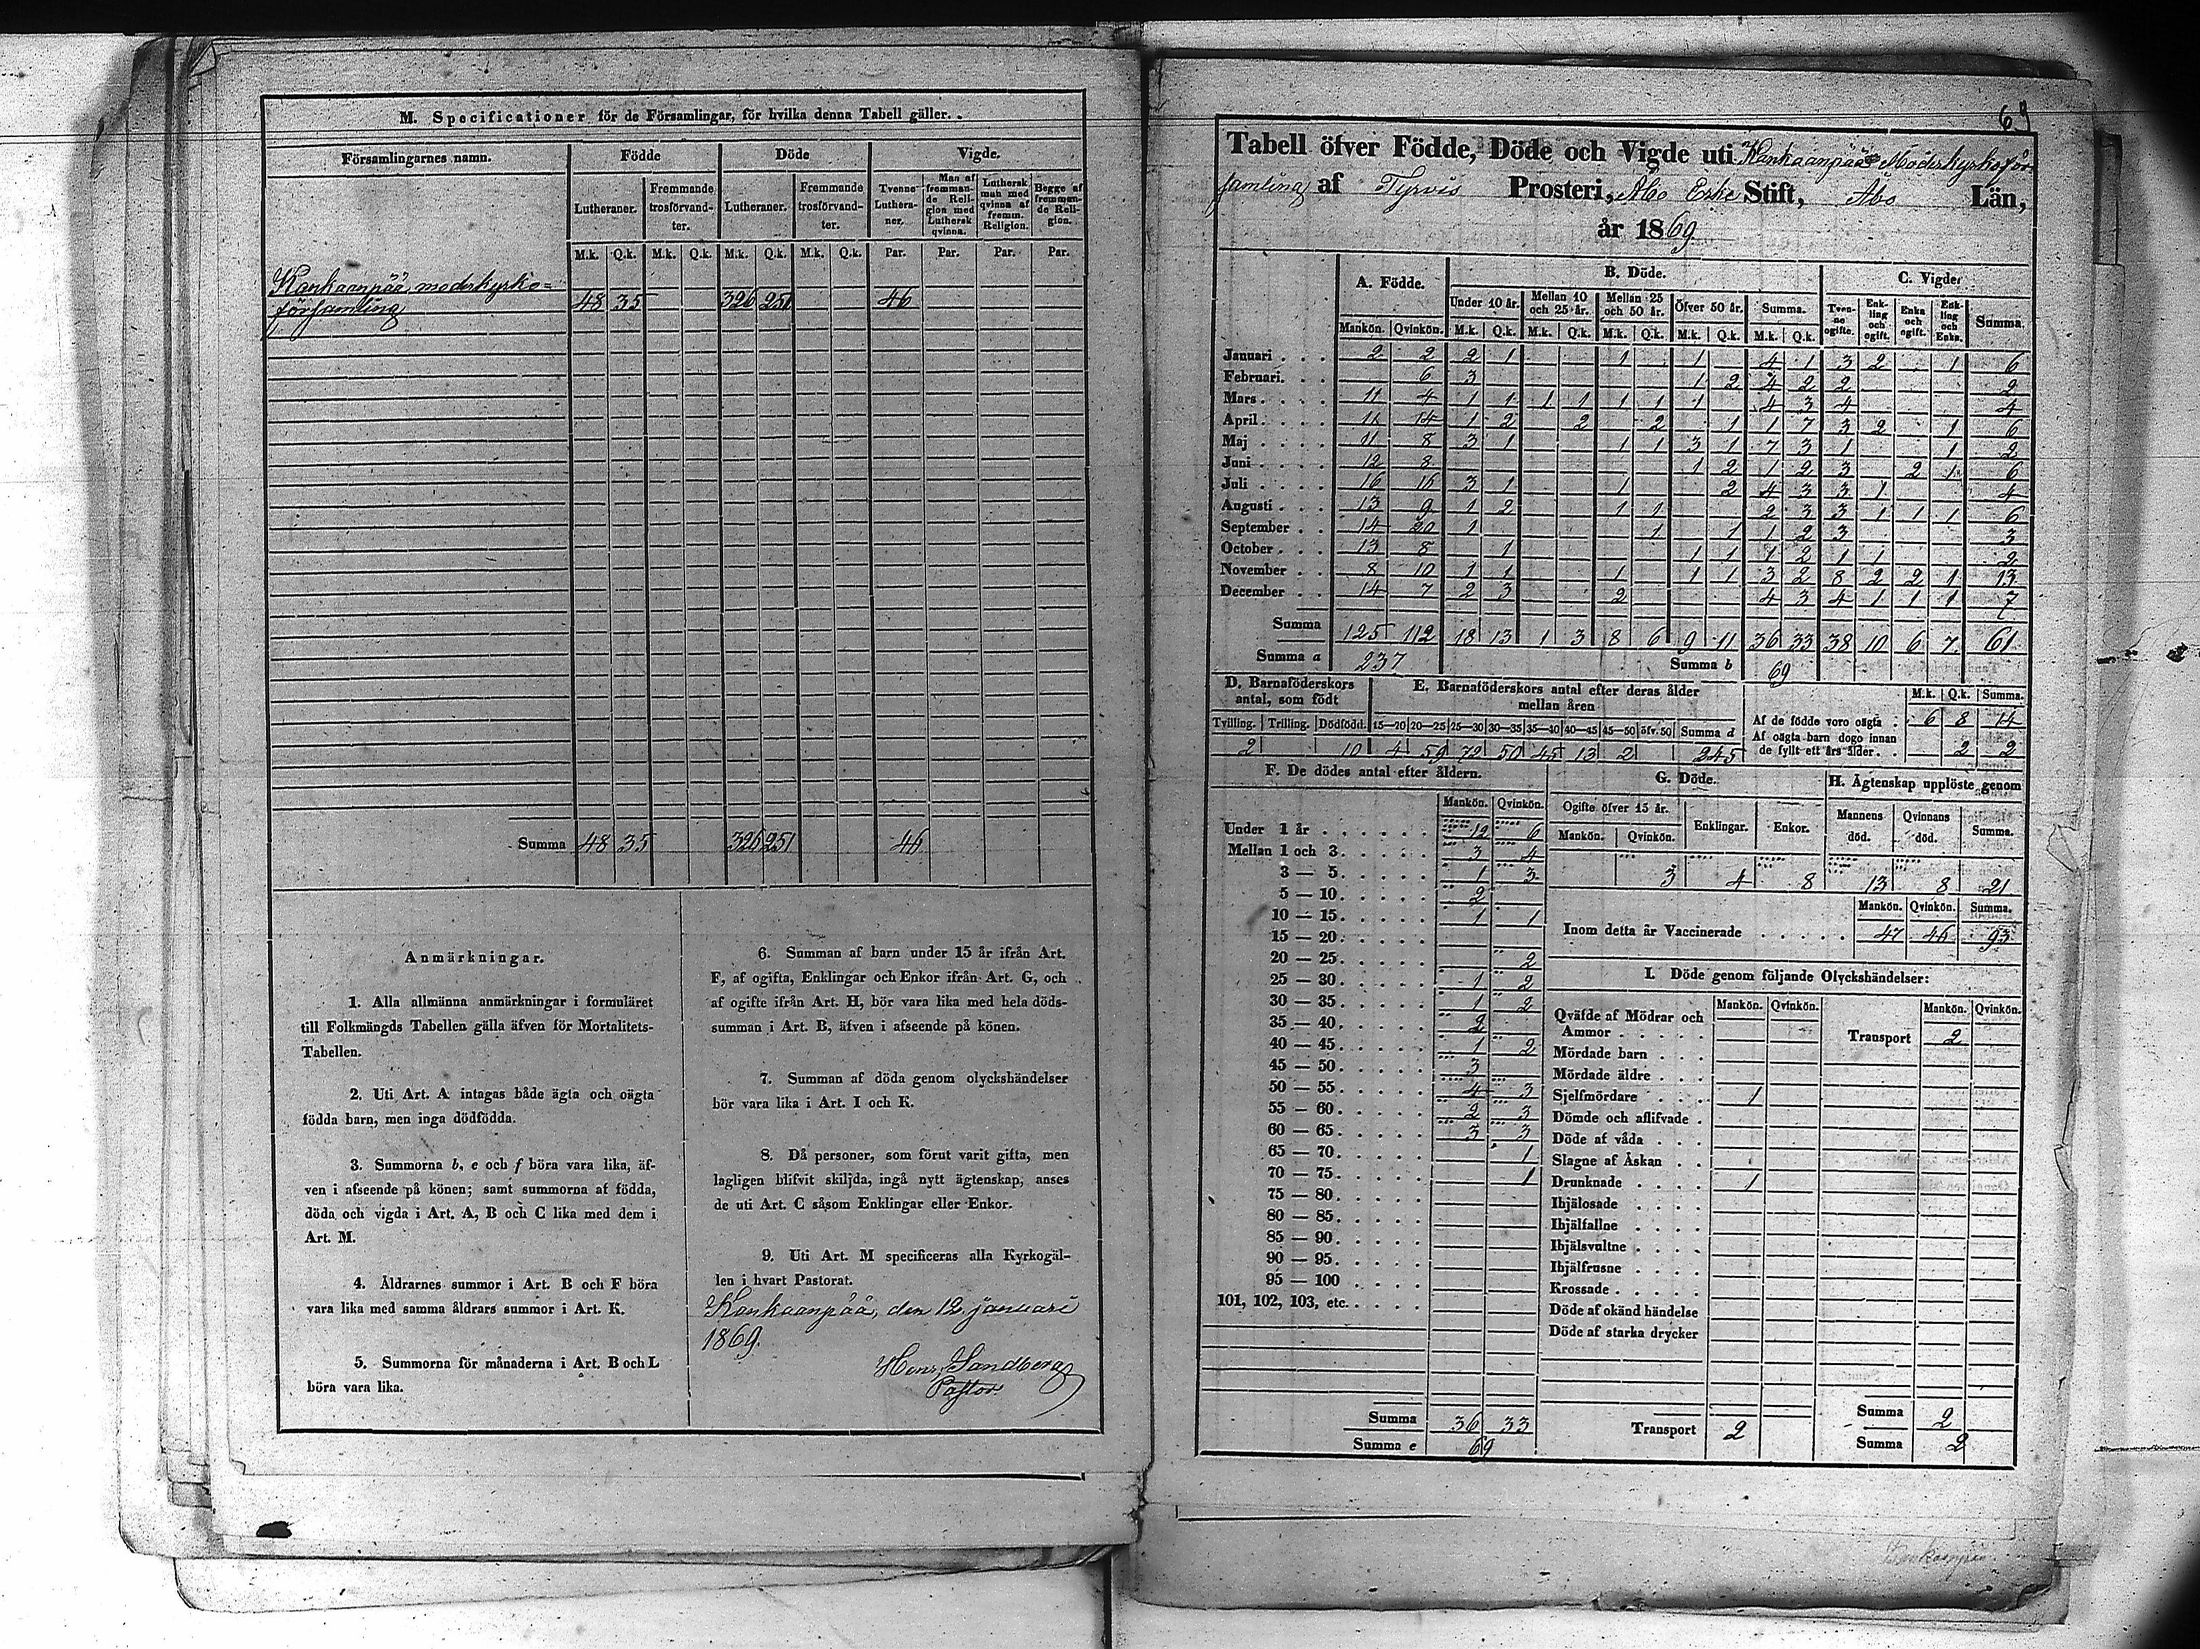 M. Specificationer för de Församlingar, för hvilka denna Tabell gäller.
Församlingarnes namn. Födde Döde Vigde.
Lutheraner. Fremmande trosförvandter. Lutheraner. Fremmande trosförvandter. Tvenne Lutheraner. Man af fremmande Religion med Luthersk qvinna. Luthersk man med qvinna af fremm. Religion. Begge af fremmande Religion.
M.k. Q.k. M.k. Q.k. M.k. Q.k. M.k. Q.k. Par. Par. Par. Par.
Kankaanpää moderkyrko=
församling 48 35 326 251 46
Summa 48 35 326 251 46
Anmärkningar.
1. Alla allmänna anmärkningar i formuläret
till Folkmängds Tabellen gälla äfven för Mortalitets-
Tabellen.
2. Uti Art. A intagas både ägta och oägta
födda barn, men inga dödfödda.
3. Summorna b, e och f böra vara lika, äf-
ven i afseende på könen; samt summorna af födda,
döda och vigda i Art. A, B och C lika med dem i
Art. M.
4. Åldrarnes summor i Art. B och F böra
vara lika med samma åldrars summor i Art. K.
5. Summorna för månaderna i Art. B och L
böra vara lika.
6. Summan af barn under 15 år ifrån Art.
F, af ogifta, Enklingar och Enkor ifrån Art. G, och
af ogifte ifrån Art. H, bör vara lika med hela döds-
summan i Art. B, äfven i afseende på könen.
7. Summan af döda genom olyckshändelser
bör vara lika i Art. I och K.
8. Då personer, som förut varit gifta, men
lagligen blifvit skiljda, ingå nytt ägtenskap, anses
de uti Art. C såsom Enklingar eller Enkor.
9. Uti Art. M specificeras alla Kyrkogäl-
len i hvart Pastorat.
Kankaanpää, den 12 januari
1869.
Henr. Sandberg
Pastor
69
Tabell öfver Födde, Döde och Vigde uti Kankaanpää Moderkyrkoför-
samling af Tyrvis Prosteri, Åbo Erke Stift, Åbo Län,
år 1869
A. Födde. B. Döde. C. Vigde
Under 10 år. Mellan 10 och 25 år. Mellan 25 och 50 år. Öfver 50 år. Summa. Tvenne ogifte. Enkling och ogift. Enka och ogift. Enkling och Enka. Summa.
Mankön. Qvinkön. M.k. Q.k. M.k. Q.k. M.k. Q.k. M.k. Q.k. M.k. Q.k.
Januari 2 2 2 1 1 1 4 1 3 2 1 6
Februari 6 3 1 2 4 2 2 2
Mars 11 4 1 1 1 1 1 1 1 4 3 4 4
April 11 14 1 2 2 2 1 1 7 3 2 1 6
Maj 11 8 3 1 1 1 3 1 7 3 1 1 2
Juni 12 8 1 2 1 2 3 2 1 6
Juli 16 16 3 1 1 2 4 3 3 1 4
Augusti 13 9 1 2 1 1 2 3 3 1 1 1 6
September 14 20 1 1 1 1 2 3 3
October 13 8 1 1 1 1 2 1 1 2
November 8 10 1 1 1 1 1 3 2 8 2 2 1 13
December 14 7 2 3 2 4 3 4 1 1 1 7
Summa 125 112 18 13 1 3 8 6 9 11 36 33 38 10 6 7 61
Summa a 237 Summa b 69
D. Barnaföderskors antal, som födt
Tvilling. Trilling. Dödfödd.
2 10
E. Barnaföderskors antal efter deras ålder mellan åren
15—20 20—25 25—30 30—35 35—40 40—45 45—50 öfv. 50 Summa d
4 59 72 50 45 13 2 245
M.k. Q.k. Summa.
Af de födde voro oägta 6 8 14
Af oägta barn dogo innan
de fyllt ett års ålder 2 2
F. De dödes antal efter åldern.
Mankön. Qvinkön.
Under 1 år 12 6
Mellan 1 och 3 3 4
3 — 5 1 3
5 — 10 2
10 — 15 1 1
15 — 20
20 — 25 2
25 — 30 1 2
30 — 35 1 2
35 — 40 2
40 — 45 1 2
45 — 50 3
50 — 55 4 3
55 — 60 2 3
60 — 65 3 3
65 — 70 1
70 — 75 1
75 — 80
80 — 85
85 — 90
90 — 95
95 — 100
101, 102, 103, etc.
Summa 36 33
Summa e 69
G. Döde.
Ogifte öfver 15 år. Enklingar. Enkor.
Mankön. Qvinkön.
3 4 8
H. Ägtenskap upplöste genom
Mannens död. Qvinnans död. Summa.
13 8 21
Mankön. Qvinkön. Summa.
Inom detta år Vaccinerade 47 46 93
I. Döde genom följande Olyckshändelser:
Mankön. Qvinkön. Mankön. Qvinkön.
Qväfde af Mödrar och
Ammor
Transport 2
Mördade barn
Mördade äldre
Sjelfmördare 1
Dömde och aflifvade
Döde af våda
Slagne af Åskan
Drunknade 1
Ihjälosade
Ihjälfallne
Ihjälsvultne
Ihjälfrusne
Krossade
Döde af okänd händelse
Döde af starka drycker
Transport 2
Summa 2
Summa 2